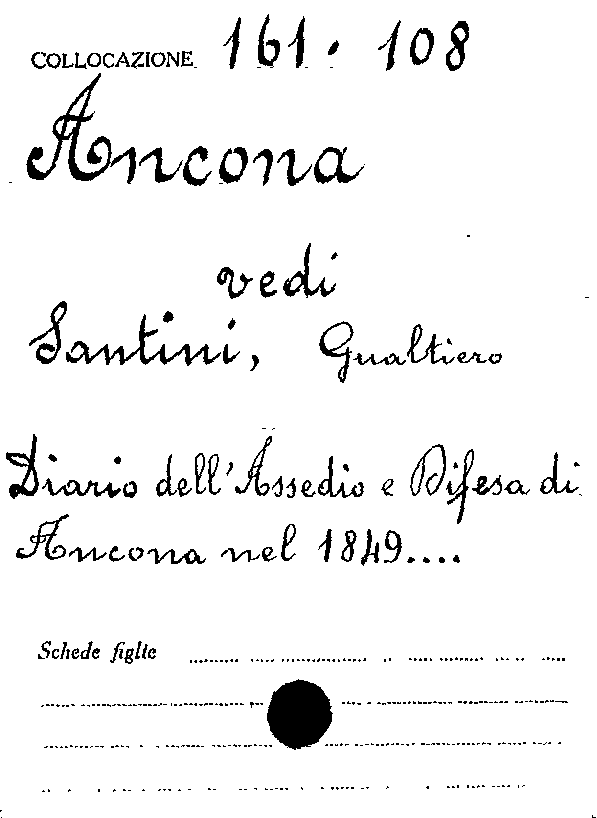 COLLOCAZIONE 161. 108
Ancona
vedi
Santini, Gualtiero
Diario dell'Assedio e Difesa di
Ancona nel 1849....
Schede figlie